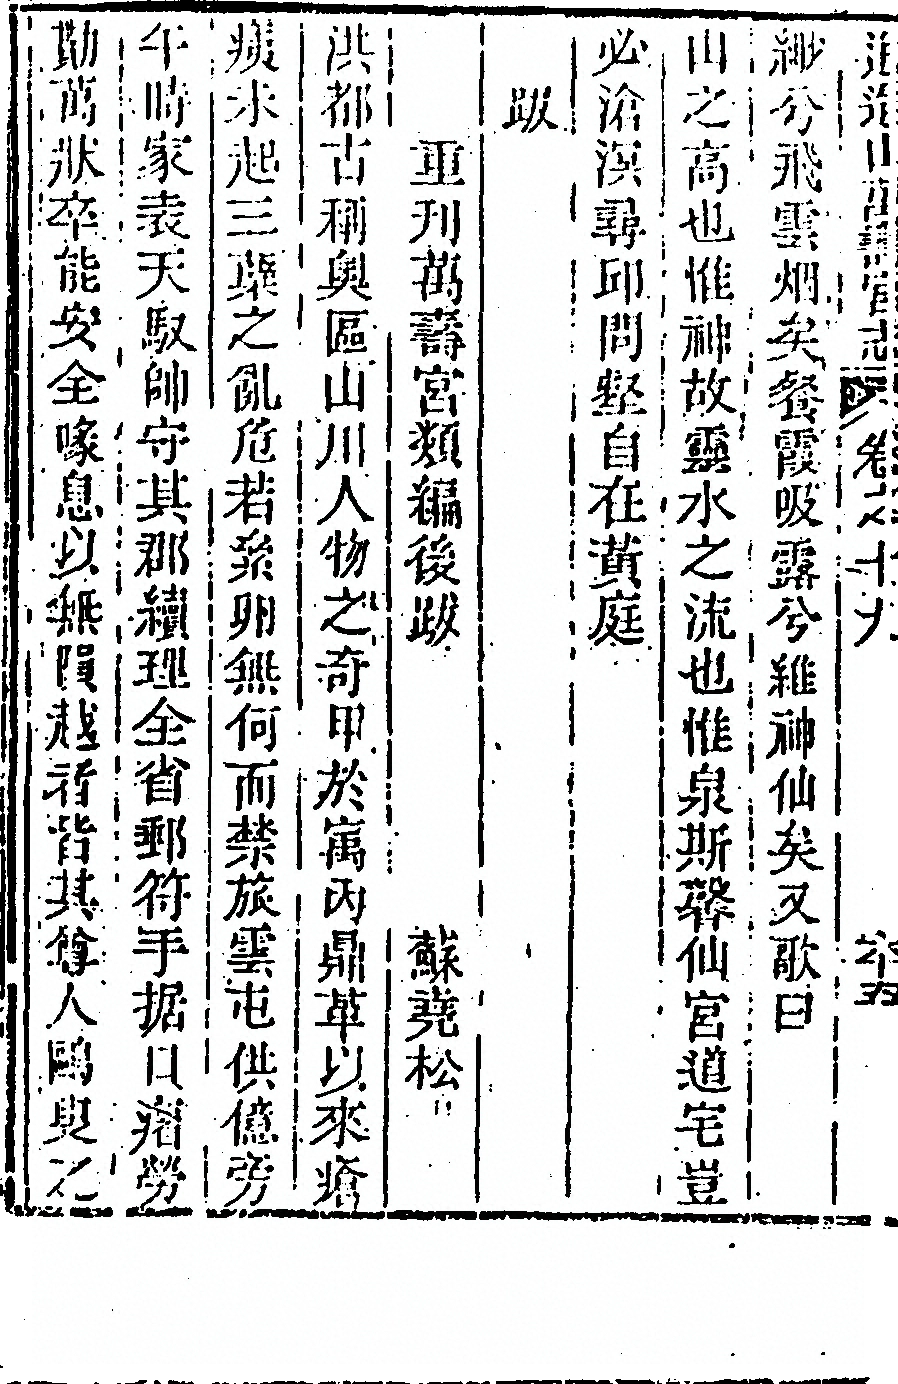 逍遙山萬壽宮志 卷之十九 卒五
緲兮飛雲烟矣餐霞吸露兮雜神仙矣又歌曰
山之高也惟神故靈水之流也惟泉斯馨仙宮道宅豈
必滄溟尋邱問壑自在黃庭
跋
重刊萬壽宮類編後跋 蘇堯松
洪都古稱奥區山川人物之奇甲於寓内鼎革以來瘡
痍未起三孽之亂危若累卵無何而禁旅雲屯供億旁
午時家袁天馭帥守其郡續理全省郵符手据口瘏勞
勩萬狀卒能安全喙息以無隕越者皆其尊人鷗叟之